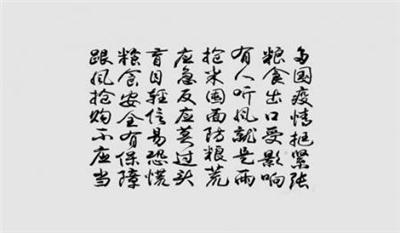 多国疫情挺紧张
粮食出口受影响
有人听风就是雨
抢米囤面防粮荒
应急反应莫过头
盲目轻信易恐慌
粮食安全有保障
跟风抢购不应当